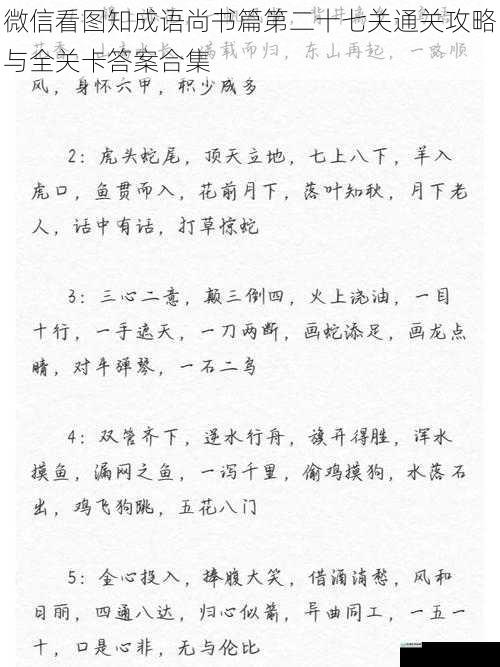 微信看图知成语尚书篇第二十七关通关攻略
与全关卡答案合集
满载而归，东山再起，一路顺
风，身怀六甲，积少成多
2：虎头蛇尾，顶天立地，七上八下，羊入
虎口，鱼贯而入，花前月下，落叶知秋，月下老
人，话中有话，打草惊蛇
3：三心二意，颠三倒四，火上浇油，一目
十行，一手遮天，一刀两断，画蛇添足，画龙点
睛，对牛弹琴，一石二鸟
4：双管齐下，逆水行舟，旗开得胜，浑水
摸鱼，漏网之鱼，一泻千里，偷鸡摸狗，水落石
出，鸡飞狗跳，五花八门
5：全心投入，捧腹大笑，借酒消愁，风和
日丽，四通八达，归心似箭，异曲同工，一五一
十，口是心非，无与伦比